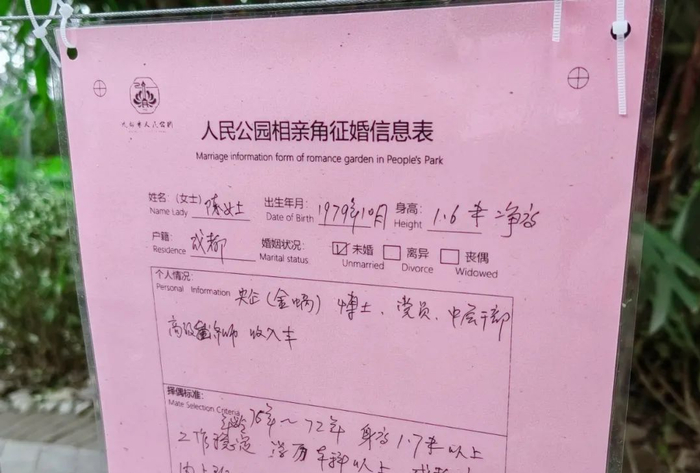 成都市人民公园
人民公园相亲角征婚信息表
Marriage information form of romance garden in People's Park
姓名:(女士) 陈女士 出生年月: 1979年10月 身高: 1.6米 净高
Name Lady Date of Birth Height
户籍: 成都 婚姻状况: ☑ 未婚 ☐ 离异 ☐ 丧偶
Residence Marital status Unmarried Divorce Widowed
个人情况:
Personal Information 央企(金融) 博士、党员、中层干部
高级 师 收入丰
择偶标准:
Mate Selection Criteria 年龄 76年~72年 身高1.7米以上
工作稳定 学历本科以上